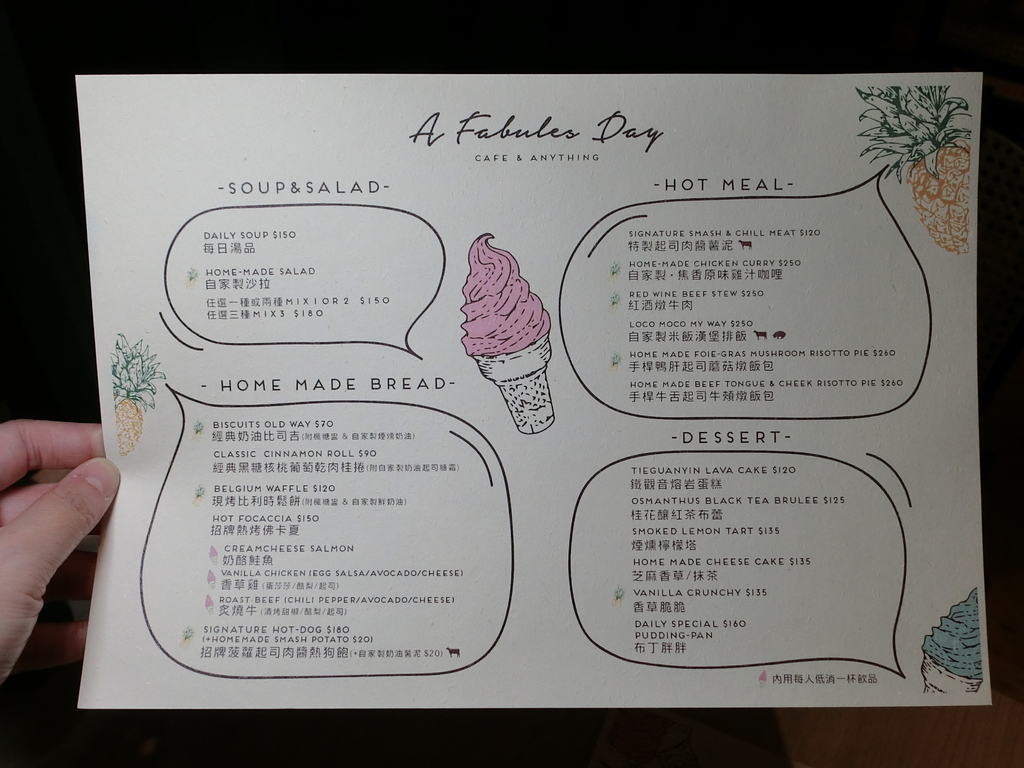 A Fabules Day
CAFE & ANYTHING
-SOUP&SALAD-
DAILY SOUP $150
每日湯品
HOME-MADE SALAD
自家製沙拉
任選一種或兩種MIX1OR2 $150
任選三種MIX3 $180
- HOME MADE BREAD-
BISCUITS OLD WAY $70
經典奶油比司吉(附楓糖盅 & 自家製煙燻奶油)
CLASSIC CINNAMON ROLL $90
經典黑糖核桃葡萄乾肉桂捲(附自家製奶油起司糖霜)
BELGIUM WAFFLE $120
現烤比利時鬆餅(附楓糖盅 & 自家製鮮奶油)
HOT FOCACCIA $150
招牌熱烤佛卡夏
CREAMCHEESE SALMON
奶酪鮭魚
VANILLA CHICKEN (EGG SALSA/AVOCADO/CHEESE)
香草雞(蛋莎莎/酪梨/起司)
ROAST BEEF (CHILI PEPPER/AVOCADO/CHEESE)
炙燒牛(清烤甜椒/酪梨/起司)
SIGNATURE HOT-DOG $180
(+HOMEMADE SMASH POTATO $20)
招牌菠蘿起司肉醬熱狗飽(+自家製奶油薯泥 $20)
-HOT MEAL-
SIGNATURE SMASH & CHILL MEAT $120
特製起司肉醬薯泥
HOME-MADE CHICKEN CURRY $250
自家製·焦香原味雞汁咖哩
RED WINE BEEF STEW $250
紅酒燉牛肉
LOCO MOCO MY WAY $250
自家製米飯漢堡排飯
HOME MADE FOIE-GRAS MUSHROOM RISOTTO PIE $260
手桿鴨肝起司蘑菇燉飯包
HOME MADE BEEF TONGUE & CHEEK RISOTTO PIE $260
手桿牛舌起司牛頰燉飯包
-DESSERT-
TIEGUANYIN LAVA CAKE $120
鐵觀音熔岩蛋糕
OSMANTHUS BLACK TEA BRULEE $125
桂花釀紅茶布蕾
SMOKED LEMON TART $135
煙燻檸檬塔
HOME MADE CHEESE CAKE $135
芝麻香草/抹茶
VANILLA CRUNCHY $135
香草脆脆
DAILY SPECIAL $160
PUDDING-PAN
布丁胖胖
內用每人低消一杯飲品